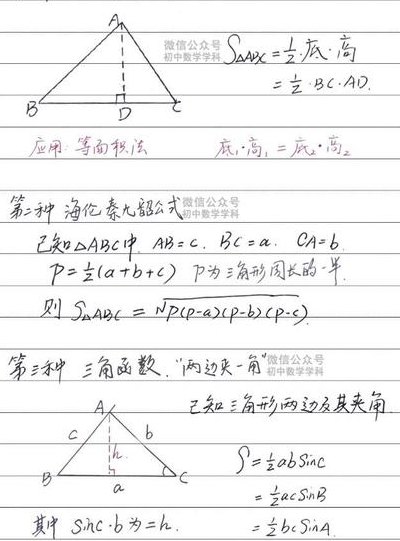 A
微信公众号
初中数学学科
S△ABC = 1/2·底·高
= 1/2·BC·AD.
B D C
应用: 等面积法 底₁·高₁ = 底₂·高₂
第二种 海伦秦九韶公式
微信公众号
初中数学学科
已知△ABC中. AB=c. BC=a. CA=b.
P=1/2(a+b+c) P为三角形周长的一半.
则 S△ABC = √P(P-a)(P-b)(P-c).
第三种 三角函数. "两边夹一角"
微信公众号
初中数学学科
已知三角形两边及其夹角
A
c b
h
B a C
S=1/2abSinC
=1/2acSinB
=1/2bcSinA.
其中 SinC·b为=h.